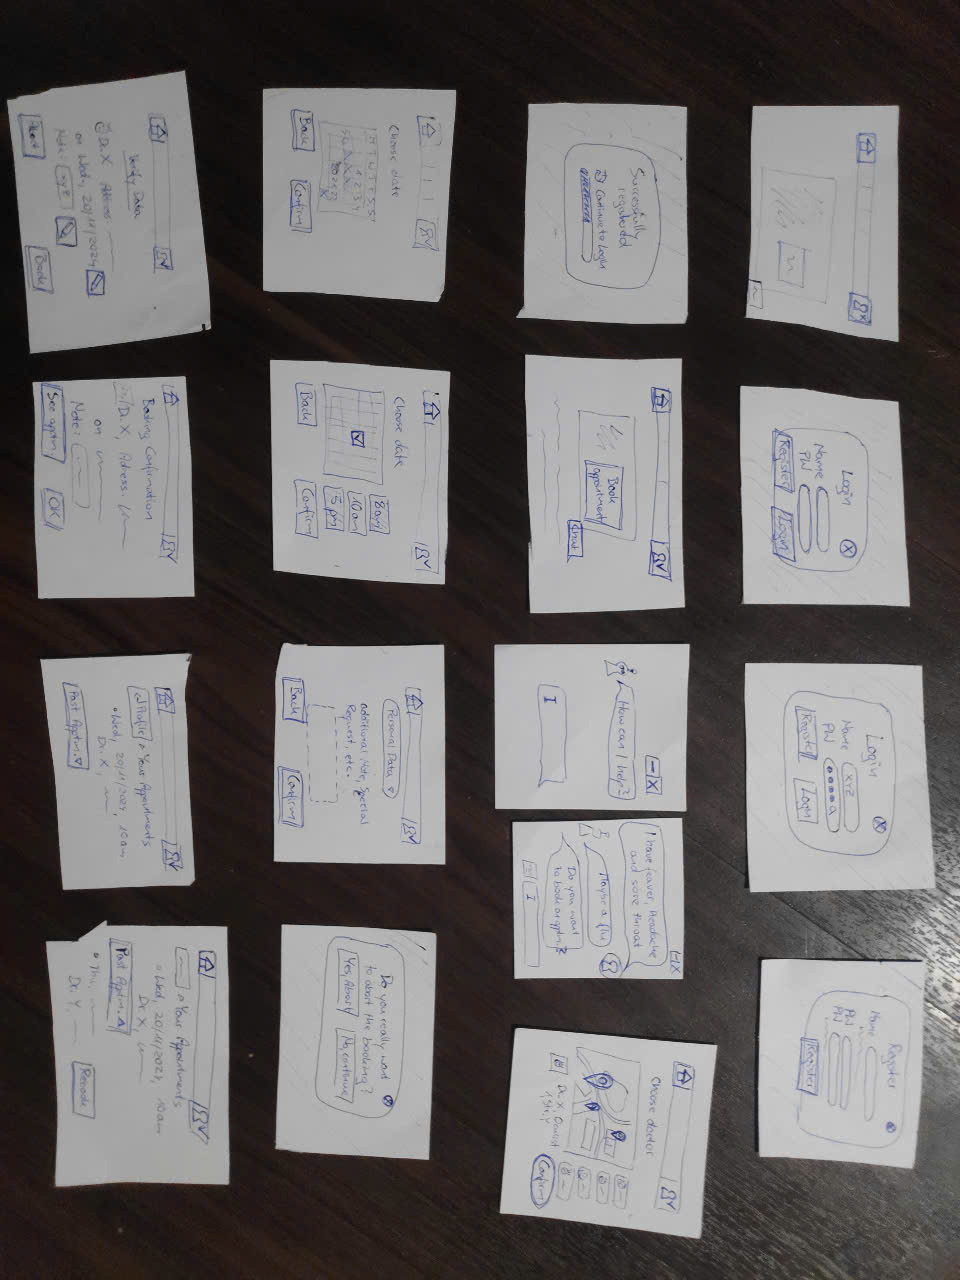 Login
Name
PW
Register
Login
Login
Name XYZ
PW
Register
Login
Register
Name
PW
PW
Register
Successfully
registered
Continue to Login
Book
appointment
Chat
How can I help?
I
I have feaver, Headache
and sore throat
Maybe a flu
Do you want
to book an apptm.?
I
Choose doctor
Dr. X, Oculist
1 Str. Y
Confirm
Choose date
M T W T F S S
1 2 3 4
Back
Confirm
Choose date
8am
10am
5 pm
Back
Confirm
Personal Data
additional Note, Special
Request, etc.
Back
Confirm
Do you really want
to abort the booking?
Yes, Abort
No, continue
Verify Data
Dr. X Address
on Wed, 20/11/2024
Note: xyz
Abort
Back
Booking Confirmation
Dr. X, Adress.
on
Note:
See apptm.
OK
Profile
Your Appointments
Wed, 20/11/2024, 10am
Dr. X,
Past Apptm.
Your Appointments
Wed, 20/11/2024, 10am
Dr. X,
Past Apptm.
Thu,
Dr. Y,
Rebook